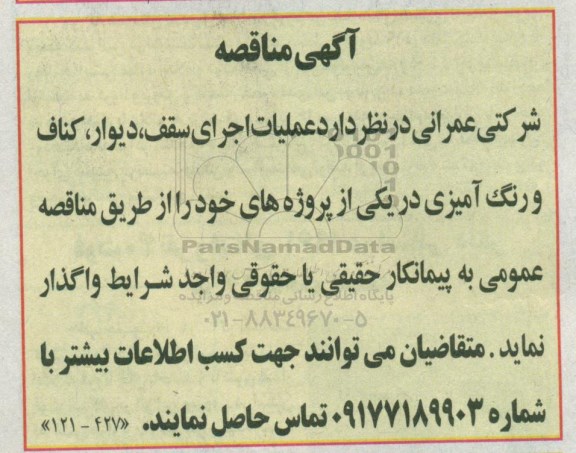 آگهی مناقصه
شرکتی عمرانی در نظر دارد عملیات اجرای سقف، دیوار، کناف
و رنگ آمیزی در یکی از پروژه های خود را از طریق مناقصه
ParsNamadData
عمومی به پیمانکار حقیقی یا حقوقی واجد شرایط واگذار
پایگاه اطلاع رسانی مناقصه و مزایده
۰۲۱-۸۸۳۴۹۶۷۰-۵
نماید . متقاضیان می توانند جهت کسب اطلاعات بیشتر با
شماره ۰۹۱۷۷۱۸۹۹۰۳ تماس حاصل نمایند. «۴۲۷ - ۱۲۱»